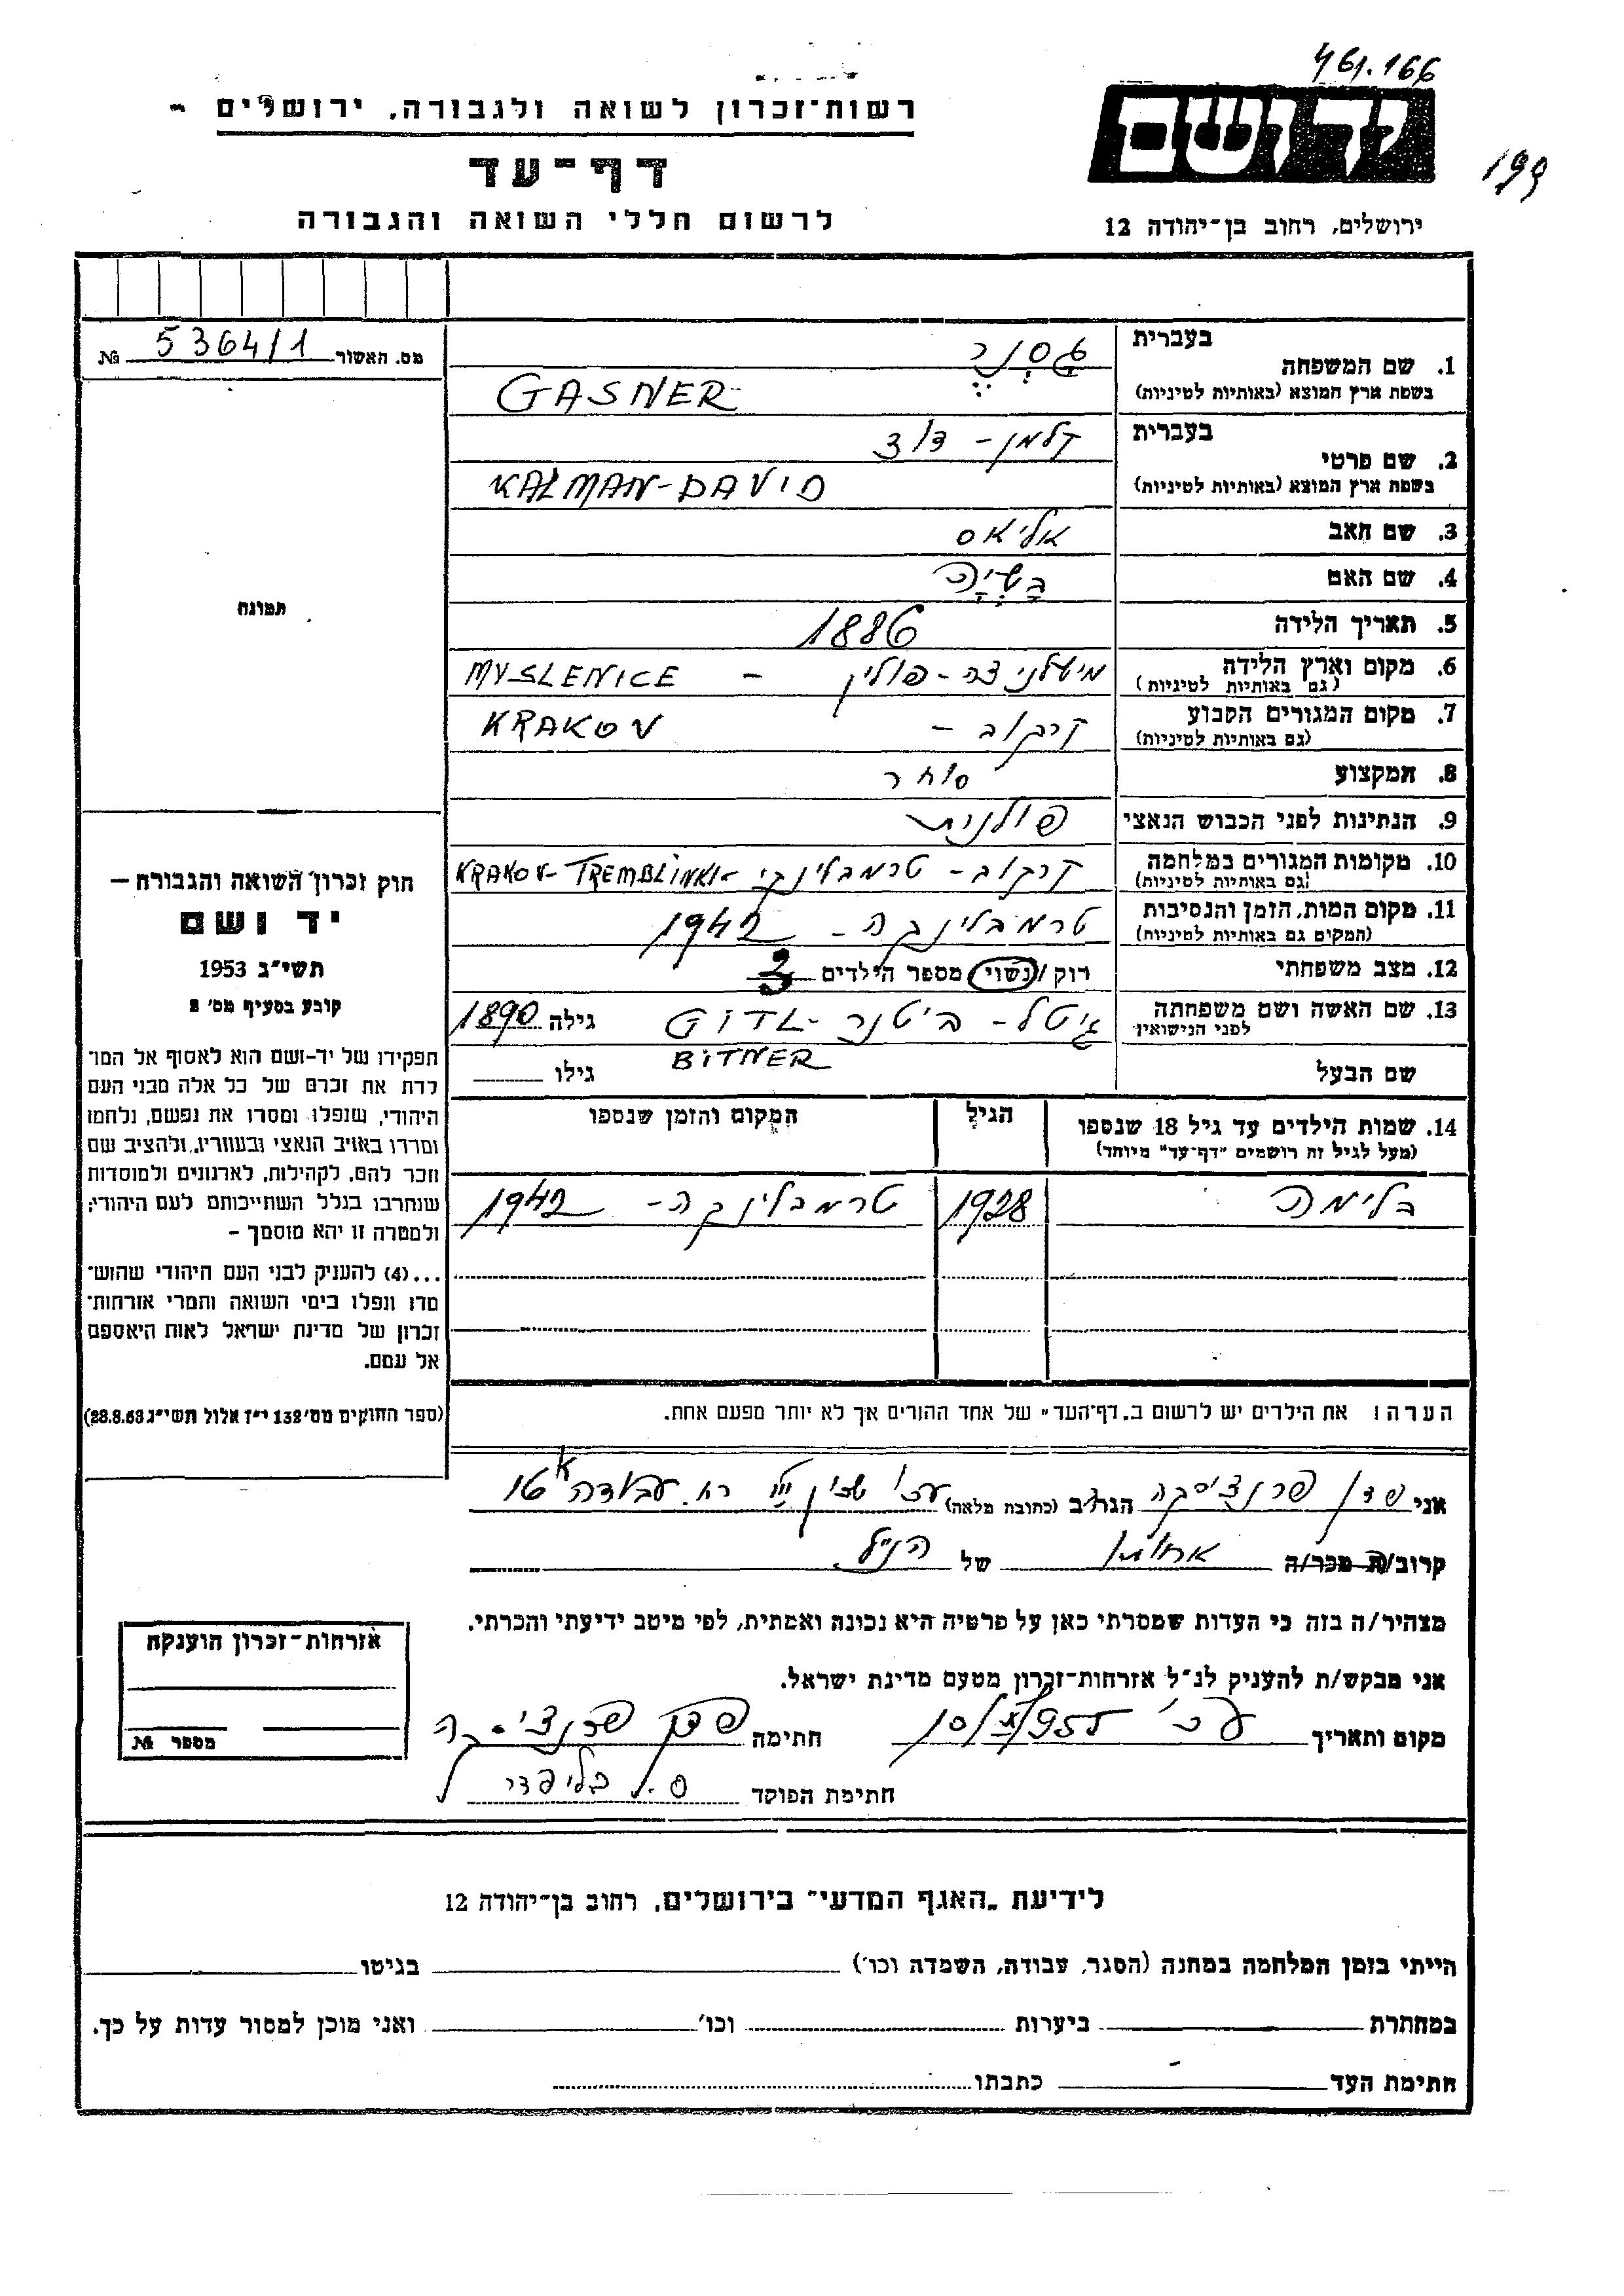 461.166
רשות־זכרון לשואה ולגבורה, ירושלים -
ידושם
199
דף־עד
לרשום חללי השואה והגבורה
ירושלים, רחוב בן־יהודה 12
מס. האשור № 5364/1
בעברית
1. שם המשפחה גַסְנֶר
בשפת ארץ המוצא (באותיות לטיניות) GASNER
בעברית
2. שם פרטי קלמן - דוד
בשפת ארץ המוצא (באותיות לטיניות) KALMAN-DAVID
3. שם האב אליאס
4. שם האם
5. תאריך הלידה 1886
6. מקום וארץ הלידה מישלניצה - פולין - MYSLENICE
(גם באותיות לטיניות)
7. מקום המגורים הקבוע קרקוב - KRAKOV
(גם באותיות לטיניות)
8. המקצוע סוחר
9. הנתינות לפני הכבוש הנאצי פולנית
10. מקומות המגורים במלחמה קרקוב - טרמבלינקי - KRAKOV-TREMBLINKI
(גם באותיות לטיניות)
11. מקום המות, הזמן והנסיבות טרמבלינקה - 1942
(המקום גם באותיות לטיניות)
12. מצב משפחתי רוק / נשוי מספר הילדים 3
13. שם האשה ושם משפחתה גיטל - ביטנר - GITL גילה 1890
לפני הנישואין BITNER
שם הבעל גילו
14. שמות הילדים עד גיל 18 שנספו הגיל המקום והזמן שנספו
(מעל לגיל זה רושמים "דף־עד" מיוחד)
בלימה 1928 טרמבלינקה - 1942
תמונה
חוק זכרון השואה והגבורה —
יד ושם
תשי"ג 1953
קובע בסעיף מס' 2
תפקידו של יד-ושם הוא לאסוף אל המו־
לדת את זכרם של כל אלה מבני העם
היהודי, שנפלו ומסרו את נפשם, נלחמו
ומרדו באויב הנאצי ובעוזריו, ולהציב שם
וזכר להם, לקהילות, לארגונים ולמוסדות
שנחרבו בגלל השתייכותם לעם היהודי;
ולמטרה זו יהא מוסמך -
...(4) להעניק לבני העם היהודי שהוש־
מדו ונפלו בימי השואה והמרי אזרחות־
זכרון של מדינת ישראל לאות היאספם
אל עמם.
(ספר החוקים מס' 132 י"ז אלול תשי"ג 28.8.53)
הערה! את הילדים יש לרשום ב„דף־העד" של אחד ההורים אך לא יותר מפעם אחת.
אני פרנציסקה הגר/ב (כתובת מלאה) רח. עבודה
קרוב/ה מכר/ה אחותו של הנ"ל
מצהיר/ה בזה כי העדות שמסרתי כאן על פרטיה היא נכונה ואמתית, לפי מיטב ידיעתי והכרתי.
אני מבקש/ת להעניק לנ"ל אזרחות-זכרון מטעם מדינת ישראל.
מקום ותאריך חתימה פרנציסקה
חתימת הפוקד
אזרחות-זכרון הוענקה
מספר №
לידיעת „האגף המדעי" בירושלים, רחוב בן־יהודה 12
הייתי בזמן המלחמה במחנה (הסגר, עבודה, השמדה וכו') בגיטו
במחתרת ביערות וכו' ואני מוכן למסור עדות על כך.
חתימת העד כתבתו